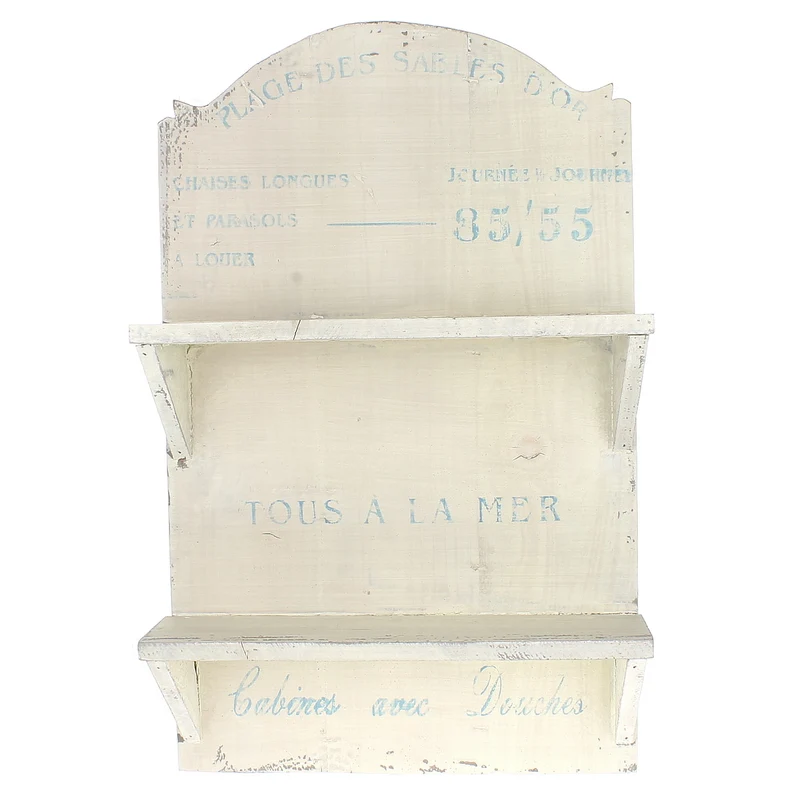 PLAGE DES SABLES D'OR
CHAISES LONGUES
ET PARASOLS
A LOUER
JOURNÉE ½ JOURNEY
85/55
TOUS A LA MER
Cabines avec Douches